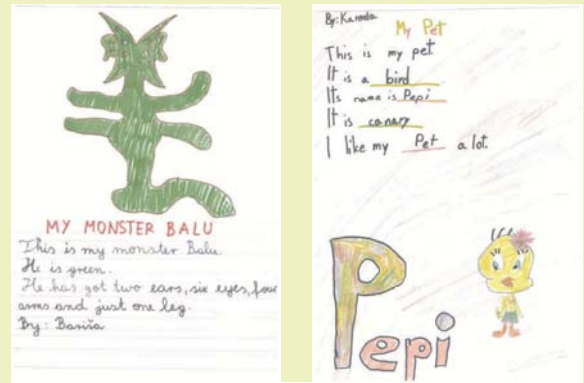 MY MONSTER BALU
This is my monster Balu.
He is green.
He has got two ears, six eyes, four
arms and just one leg.
By: Bariša
By: Karola
My Pet
This is my pet.
It is a bird
Its name is Pepi
It is canary
I like my Pet a lot.
Pepi